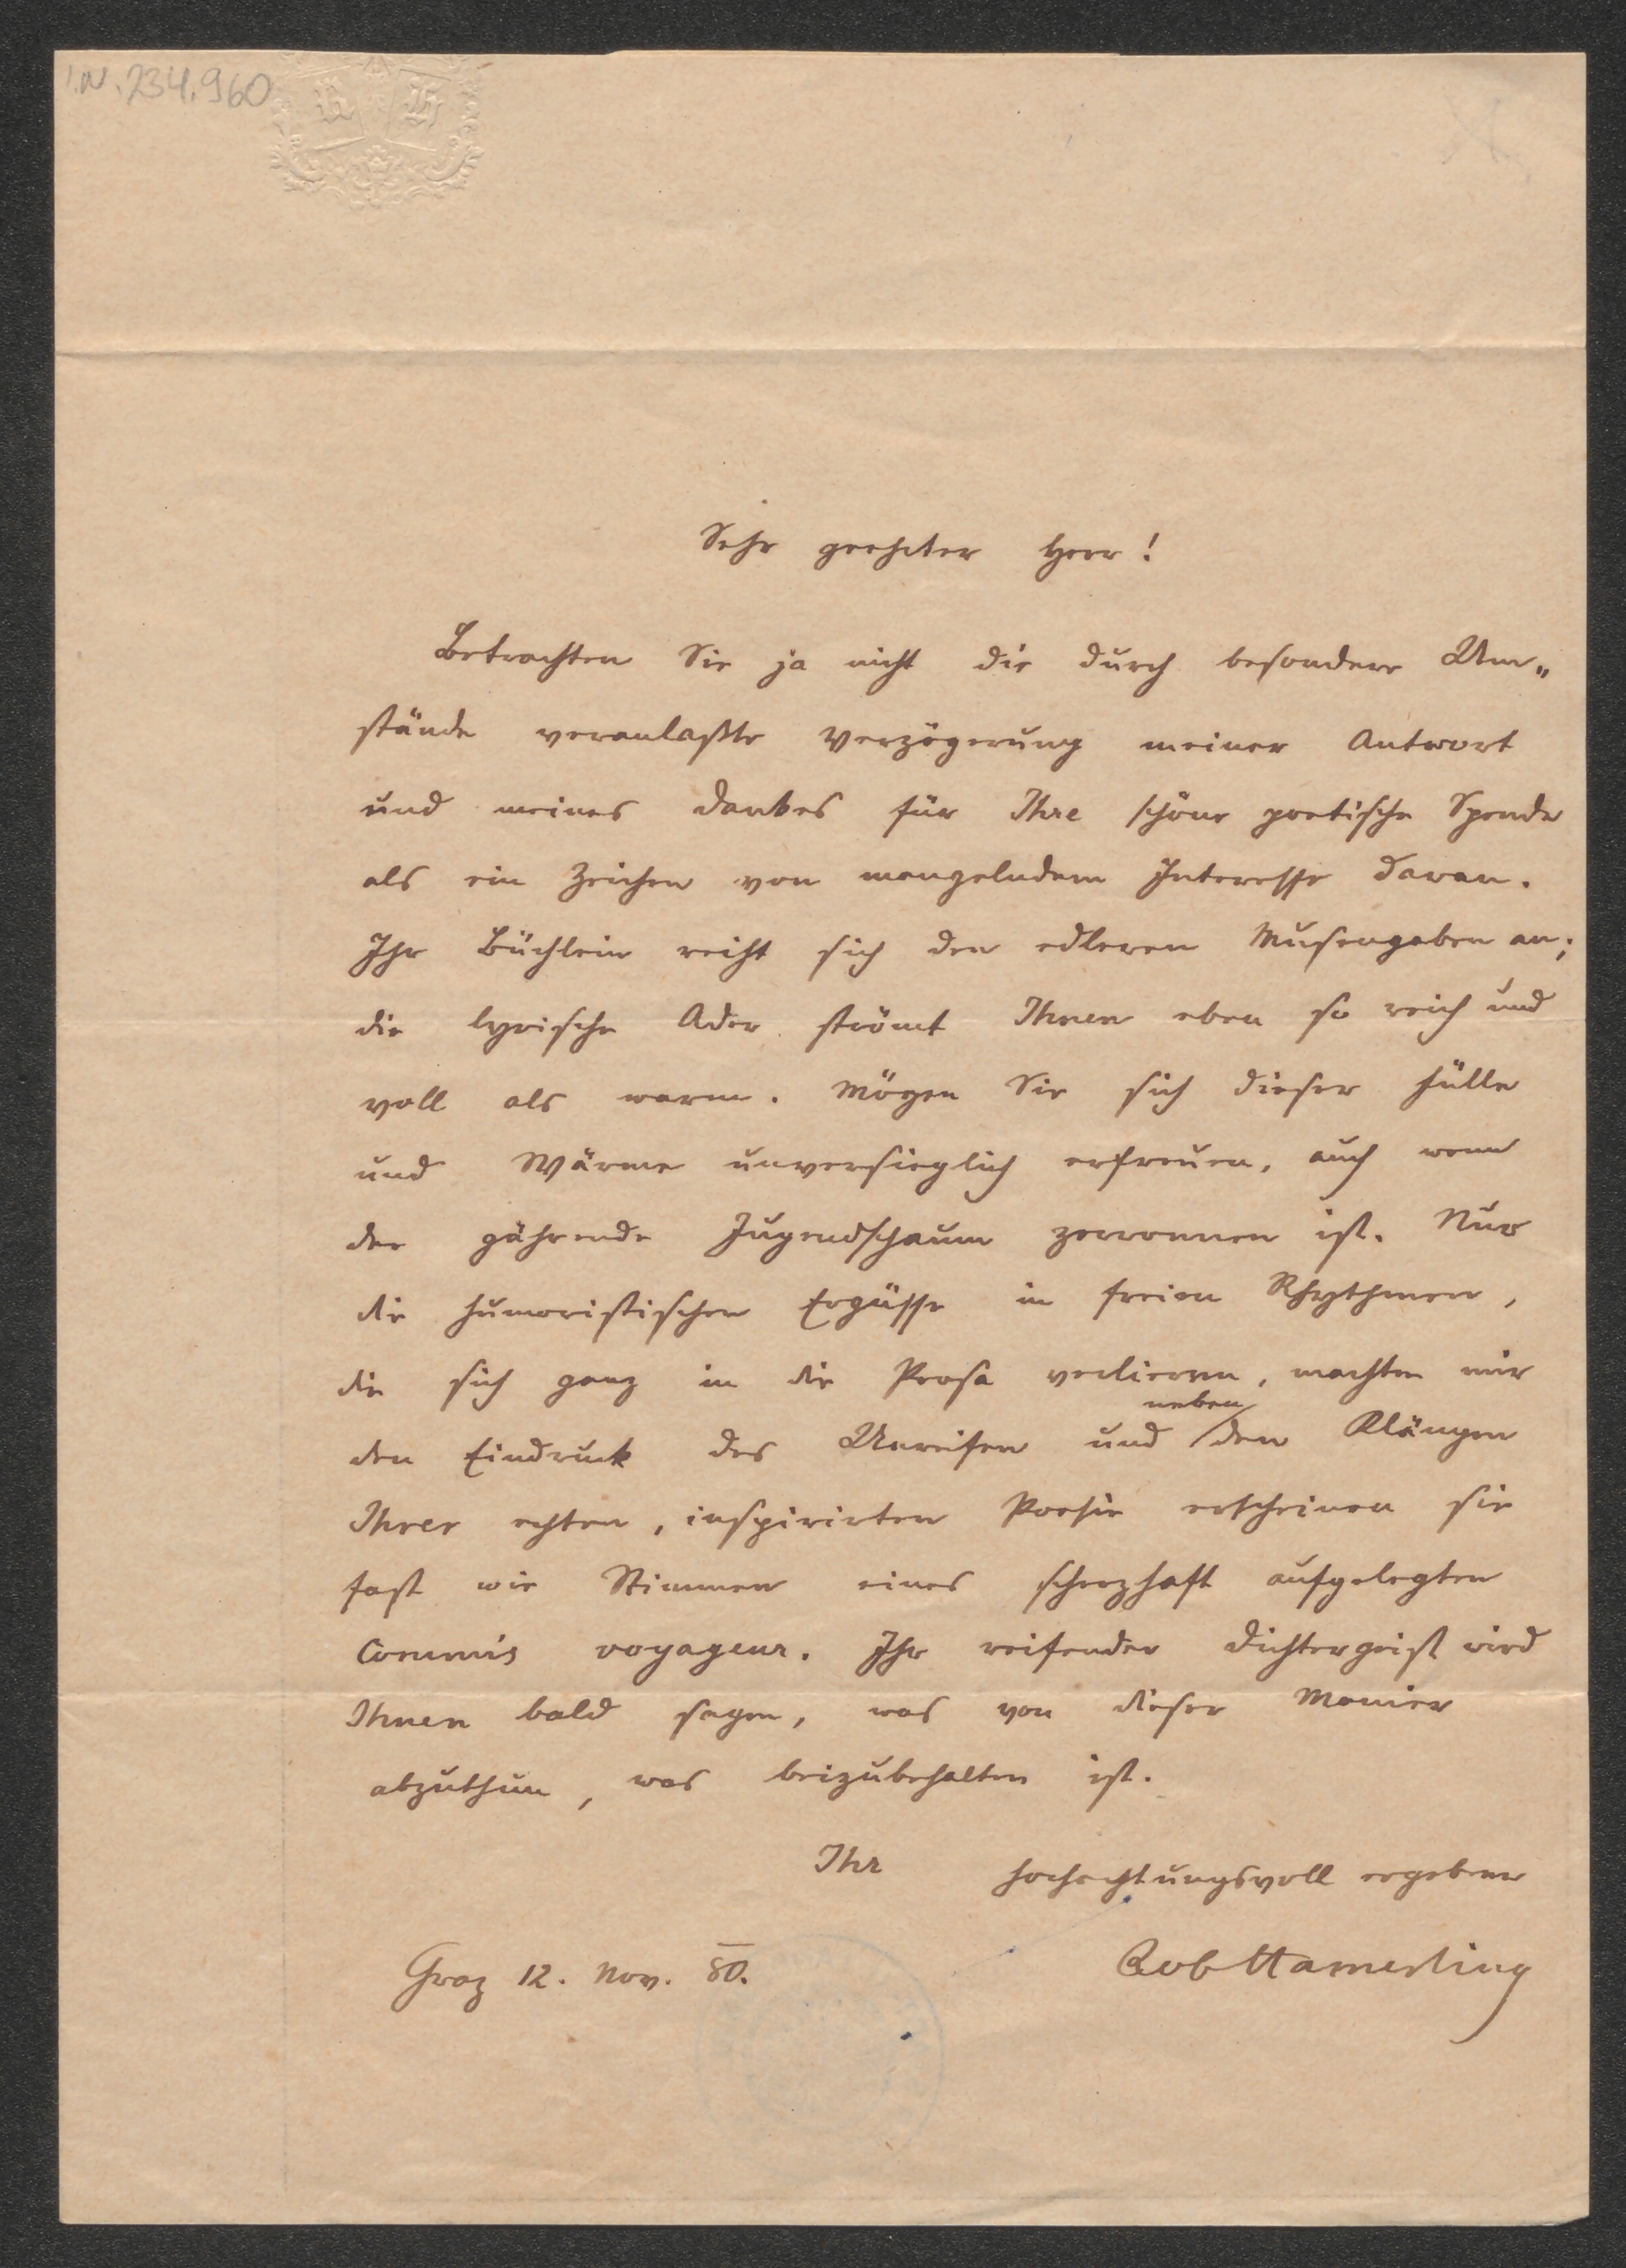 I.N. 234.960
R H
Sehr geehrter Herr!
Betrachten Sie ja nicht die durch besondere Um„
stände veranlaßte Verzögerung meiner Antwort
und meines Dankes für Ihre schöne poetische Spende
als ein Zeichen von mangelndem Interesse daran.
Ihr Büchlein reiht sich den edleren Musengaben an;
die lyrische Ader strömt Ihnen eben so reich und
voll als warm. Mögen Sie sich dieser Fülle
und Wärme unversieglich erfreuen, auch wenn
der gährende Jugendschaum zerronnen ist. Nur
die humoristischen Ergüsse in freien Rhythmen,
die sich ganz in die Prosa verlieren, machten mir
den Eindruck des Unreifen und neben den Klängen
Ihrer echten, inspirirten Poesie erscheinen sie
fast wie Stimmen eines scherzhaft aufgelegten
Commis voyageur. Ihr reifender Dichtergeist wird
Ihnen bald sagen, was von dieser Manier
abzuthun, was beizubehalten ist.
Ihr hochachtungsvoll ergebener
Rob Hamerling
Graz 12. Nov. 80.